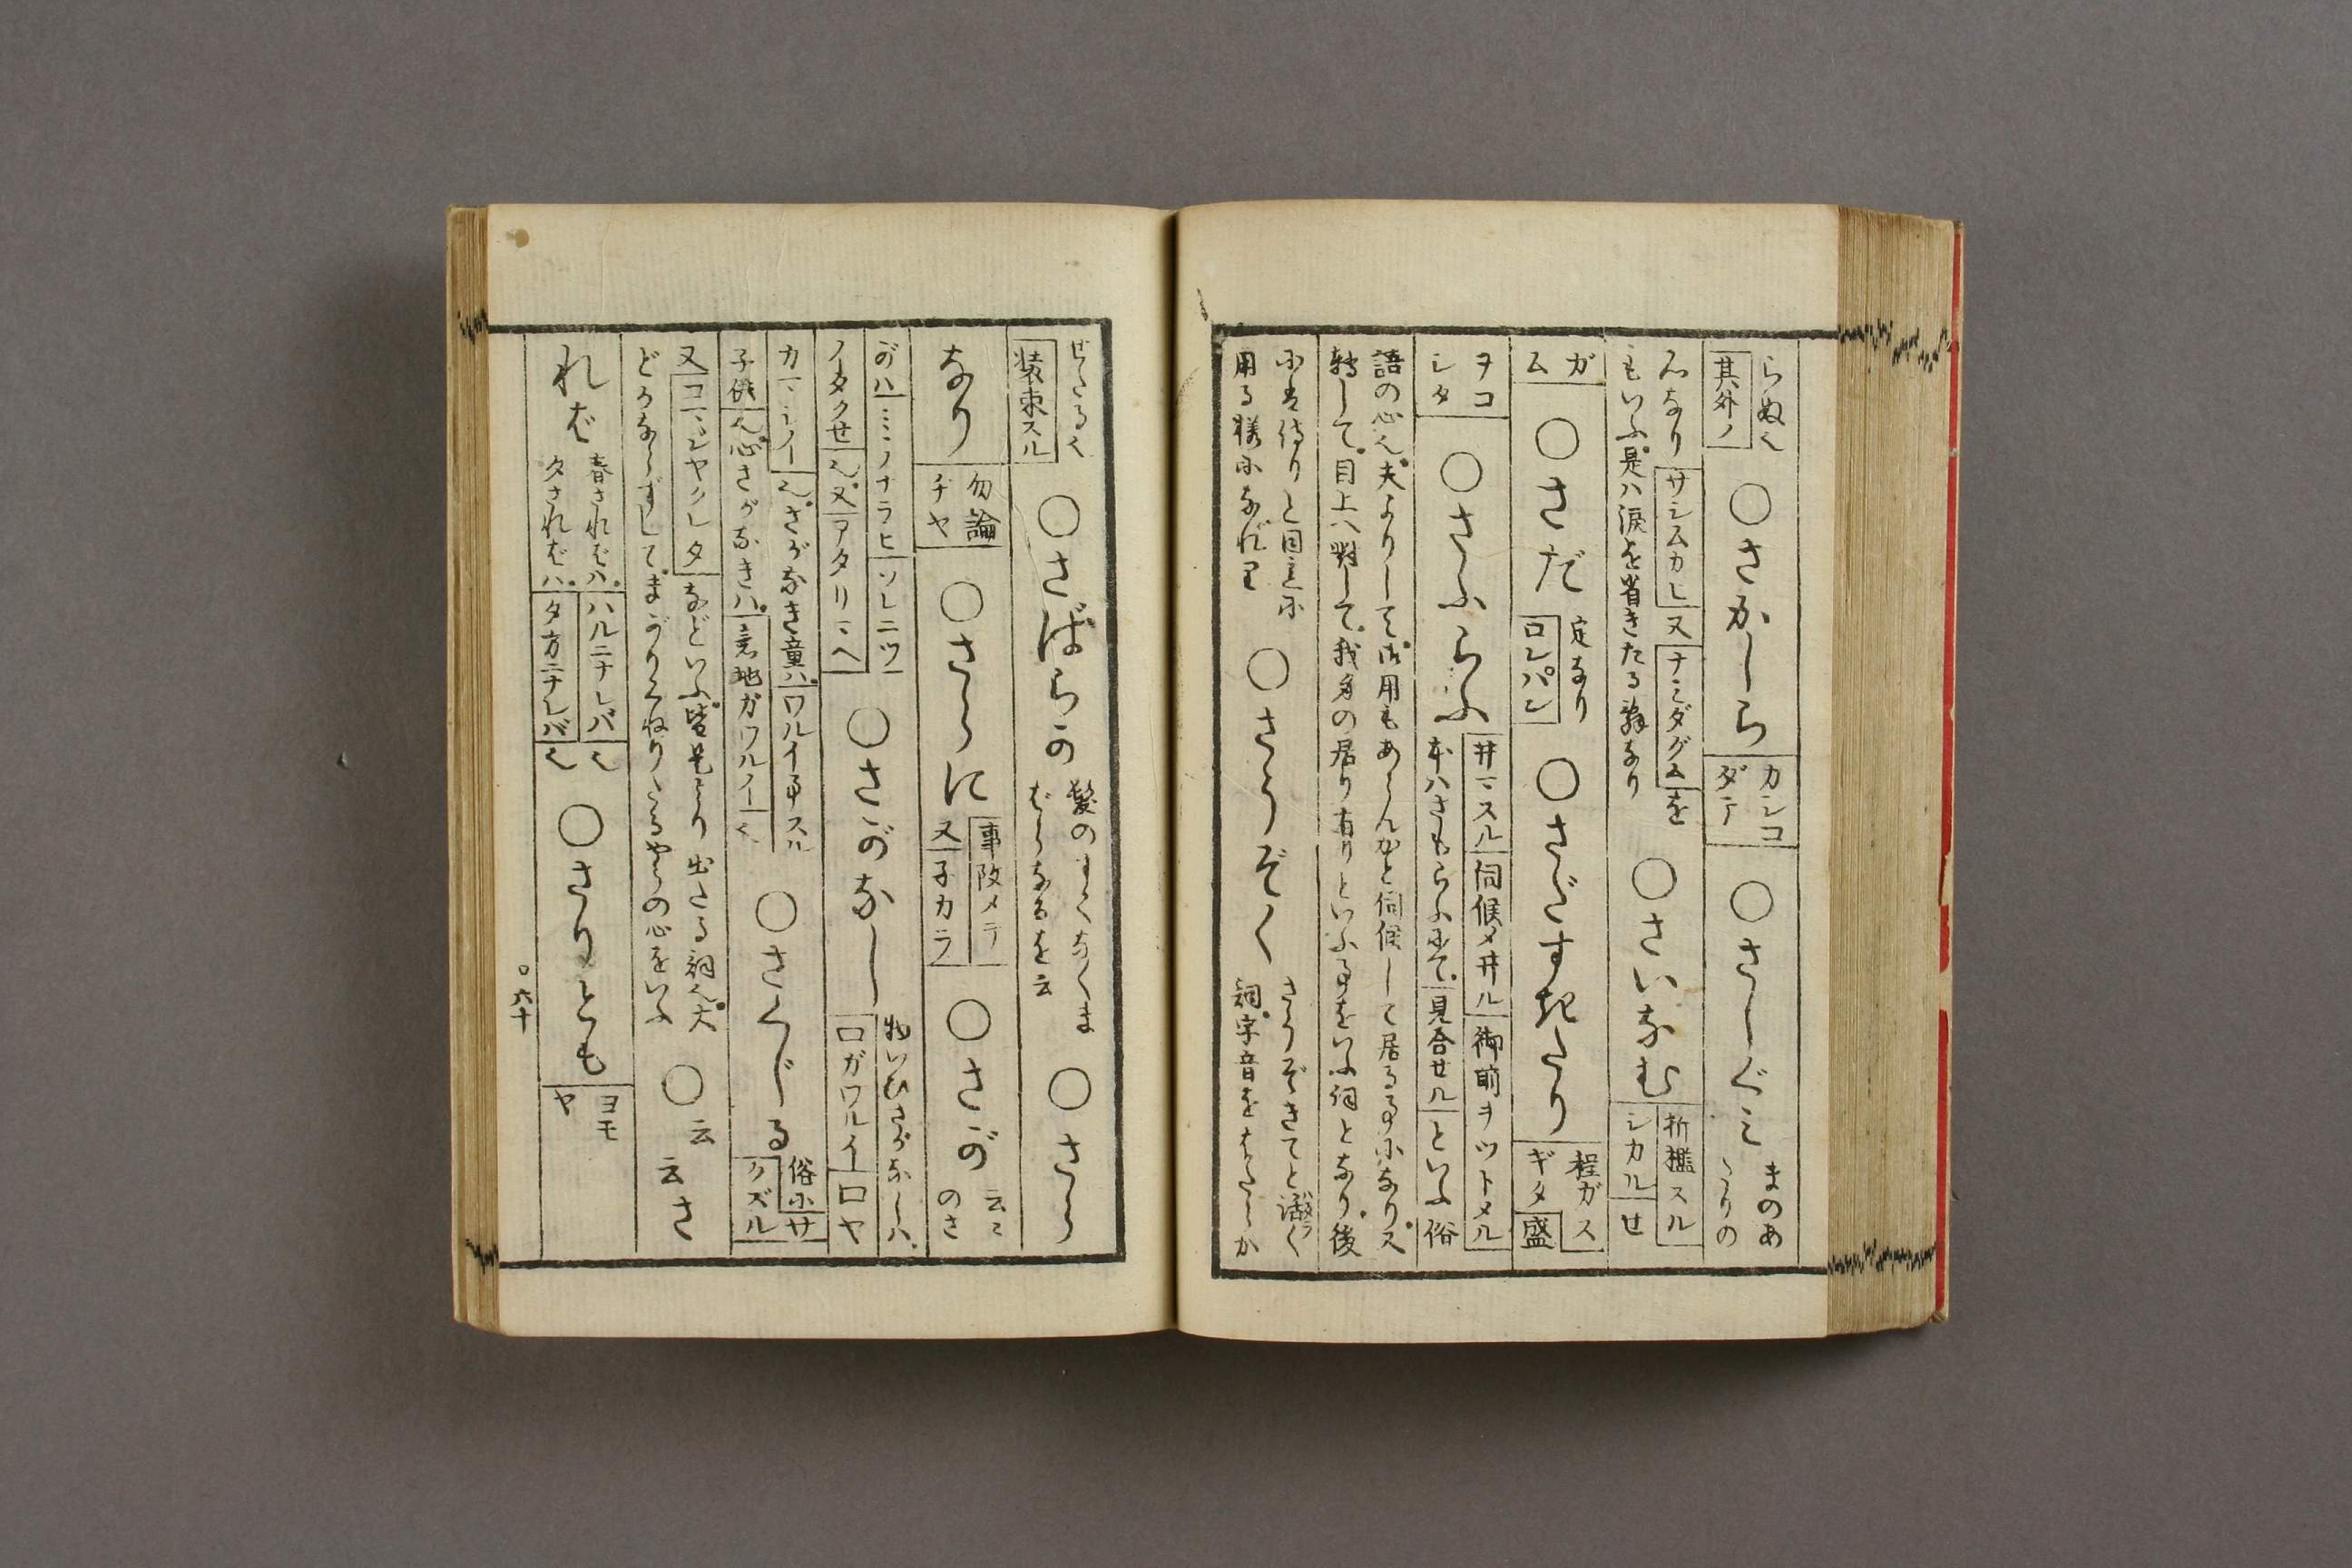 らぬ也
其外ノ
○さかしら
カシコ
ダテ
○さしぐみ
まのあ
たりの
心なり
サシムカヒ
又
ナミダグム
を
もいふ是ハ涙を省きたる辞なり
○さいなむ
折檻スル
シカル
せ
ガ
ム
○さだ
定なり
ロレパン
○さだすぎたり
程ガス
ギタ
盛
ヲコ
シタ
○さふらふ
井マスル
伺候〆井ル
御前ヲツトメル
本ハさもらふにて
見合セル
といふ俗
語の心也夫よりして御用もあらんかと伺候して居る事になり又
転して目上へ対して我身の居り有りといふ事をいふ詞となり後
にハ侍りと同意に
用る様になれり
○さうぞく
さうぞきてと活く
詞字音をはたらか
せたる也
装束スル
○さばらか
髪の
ばらなるを云
○さら
なり
勿論
ヂヤ
○さらに
事改メテ
又
子カラ
○さが
云々
のさ
がハ
ミヽノナラヒ
ソレニツ
ノータクせ
也又
アタリマヘ
○さがなし
物いひさがなしハ
口ガワルイ
口ヤ
カマシイ
也さがなき童ハ
ワルイ事スル
子供
也心さがなきハ
意地ガワルイ
也
○さくじる
俗に
サ
クズル
又
コマシヤクレタ
などいふ皆是より出たる詞也
どかならずしてまがりくねりたるやうの心をいふ
○云
云さ
れば
春さればハ
ハルニナレバ
也
夕さればハ
夕方ニナレバ
也
○さりとも
ヨモ
ヤ
○六十